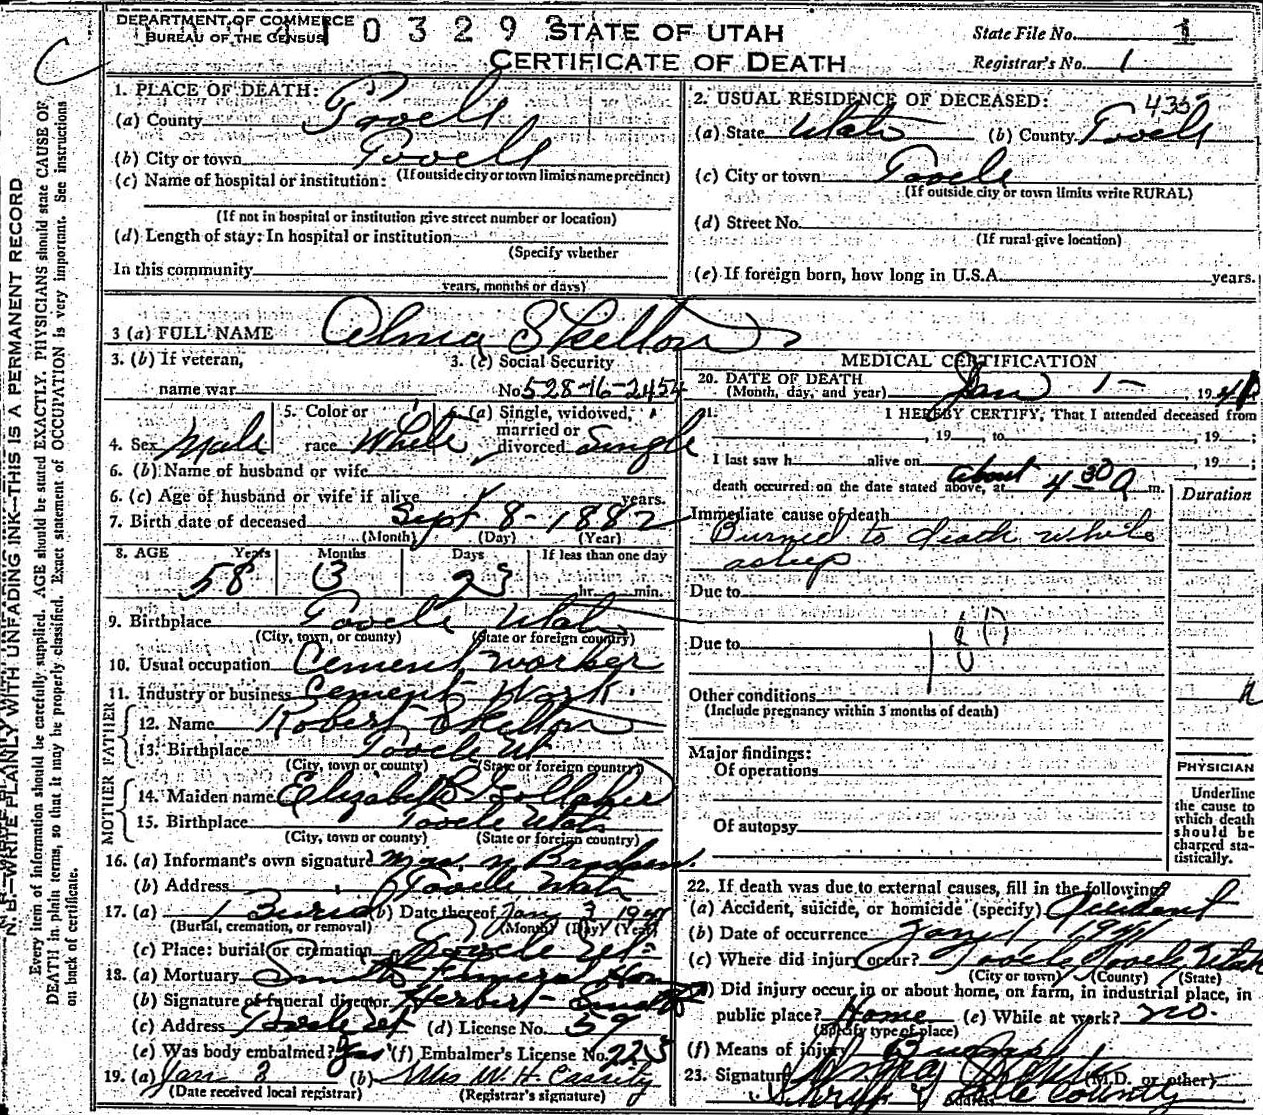 DEPARTMENT OF COMMERCE
BUREAU OF THE CENSUS
0 3 2 9
STATE OF UTAH
CERTIFICATE OF DEATH
State File No. 1
Registrar's No. 1
N. B.—WRITE PLAINLY WITH UNFADING INK—THIS IS A PERMANENT RECORD
Every item of information should be carefully supplied. AGE should be stated EXACTLY. PHYSICIANS should state CAUSE OF
DEATH in plain terms, so that it may be properly classified. Exact statement of OCCUPATION is very important. See instructions
on back of certificate.
1. PLACE OF DEATH:
(a) County Tooele
(b) City or town Tooele
(If outside city or town limits name precinct)
(c) Name of hospital or institution:
(If not in hospital or institution give street number or location)
(d) Length of stay: In hospital or institution
(Specify whether
In this community
years, months or days)
2. USUAL RESIDENCE OF DECEASED:
(a) State Utah (b) County Tooele
(c) City or town Tooele
(If outside city or town limits write RURAL)
(d) Street No.
(If rural give location)
(e) If foreign born, how long in U.S.A. years.
3 (a) FULL NAME Alma Skelton
3. (b) If veteran,
name war
3. (c) Social Security
No. 528-16-2454
4. Sex Male
5. Color or
race White
6. (a) Single, widowed,
married or
divorced Single
6. (b) Name of husband or wife
6. (c) Age of husband or wife if alive years.
7. Birth date of deceased Sept 8-1882
(Month) (Day) (Year)
8. AGE Years Months Days If less than one day
58 3 23 hr. min.
9. Birthplace Tooele Utah
(City, town, or county) (State or foreign country)
10. Usual occupation Cement worker
11. Industry or business Cement Work.
FATHER
12. Name Robert Skelton
13. Birthplace Tooele Ut
(City, town or county) (State or foreign country)
MOTHER
14. Maiden name Elizabeth
15. Birthplace Tooele Utah
(City, town or county) (State or foreign country)
16. (a) Informant's own signature Mrs.
(b) Address Tooele Utah
17. (a) Burial (b) Date thereof Jan 3 1941
(Burial, cremation, or removal) (Month) (Day) (Year)
(c) Place: burial or cremation Tooele Ut
18. (a) Mortuary Smith Funeral Home
(b) Signature of funeral director Herbert Smith
(c) Address Tooele Ut (d) License No. 59
(e) Was body embalmed? Yes (f) Embalmer's License No. 225
19. (a) Jan 3 (b) Mrs W. H. Cassity
(Date received local registrar) (Registrar's signature)
MEDICAL CERTIFICATION
20. DATE OF DEATH
(Month, day, and year) Jan 1 - , 1941
21. I HEREBY CERTIFY, That I attended deceased from
, 19 , to , 19 ;
I last saw h alive on , 19 ;
death occurred on the date stated above, at about 4 30 a m.
Duration
Immediate cause of death
Burned to death while
asleep
Due to
Due to
Other conditions
(Include pregnancy within 3 months of death)
Major findings:
Of operations
Of autopsy
PHYSICIAN
Underline
the cause to
which death
should be
charged sta-
tistically.
22. If death was due to external causes, fill in the following:
(a) Accident, suicide, or homicide (specify) Accident
(b) Date of occurrence Jan 1 1941
(c) Where did injury occur? Tooele Tooele Utah
(City or town) (County) (State)
(d) Did injury occur in or about home, on farm, in industrial place, in
public place? Home (e) While at work? no.
(Specify type of place)
(f) Means of injury Burns
23. Signature
(M.D. or other)
Address
Sheriff Tooele County